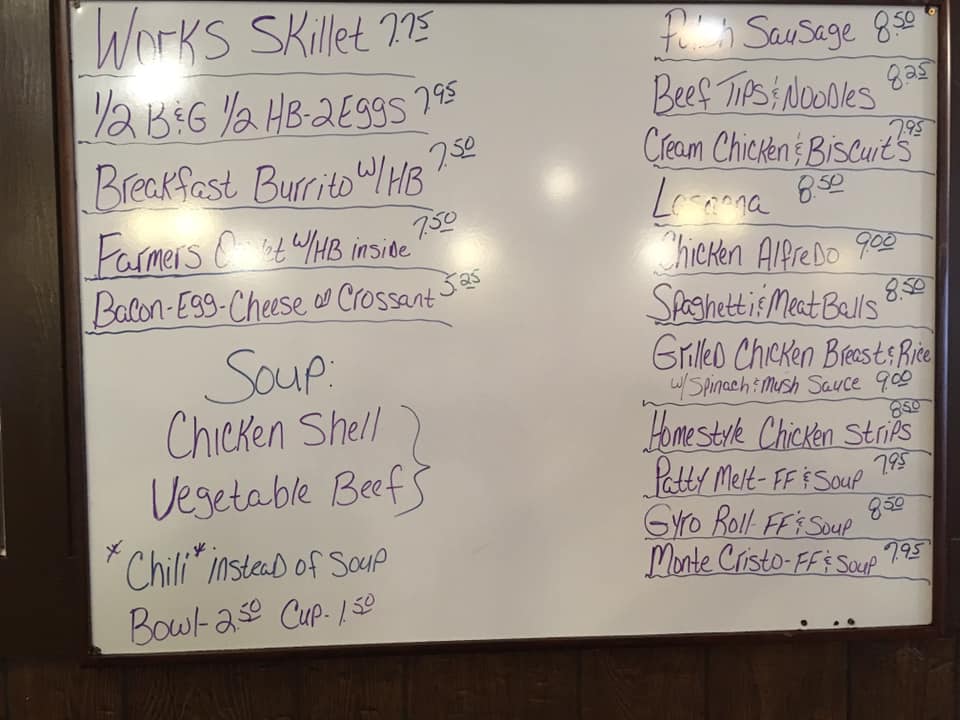 Works Skillet 7.75
1/2 B&G 1/2 HB-2Eggs 7.95
Breakfast Burrito W/HB 7.50
Farmers W/HB inside 7.50
Bacon-Egg-Cheese on Crossant 5.25
Soup:
Chicken Shell
Vegetable Beef
*Chili* instead of Soup
Bowl-2.50 Cup-1.50
Polish Sausage 8.50
Beef Tips & Noodles 8.25
Cream Chicken & Biscuits 7.95
Lasagna 8.50
Chicken Alfredo 9.00
Spaghetti & MeatBalls 8.50
Grilled Chicken Breast & Rice
w/ Spinach & Mush Sauce 9.00
Homestyle Chicken Strips 8.50
Patty Melt-FF & Soup 7.95
Gyro Roll-FF & Soup 8.50
Monte Cristo-FF & Soup 7.95